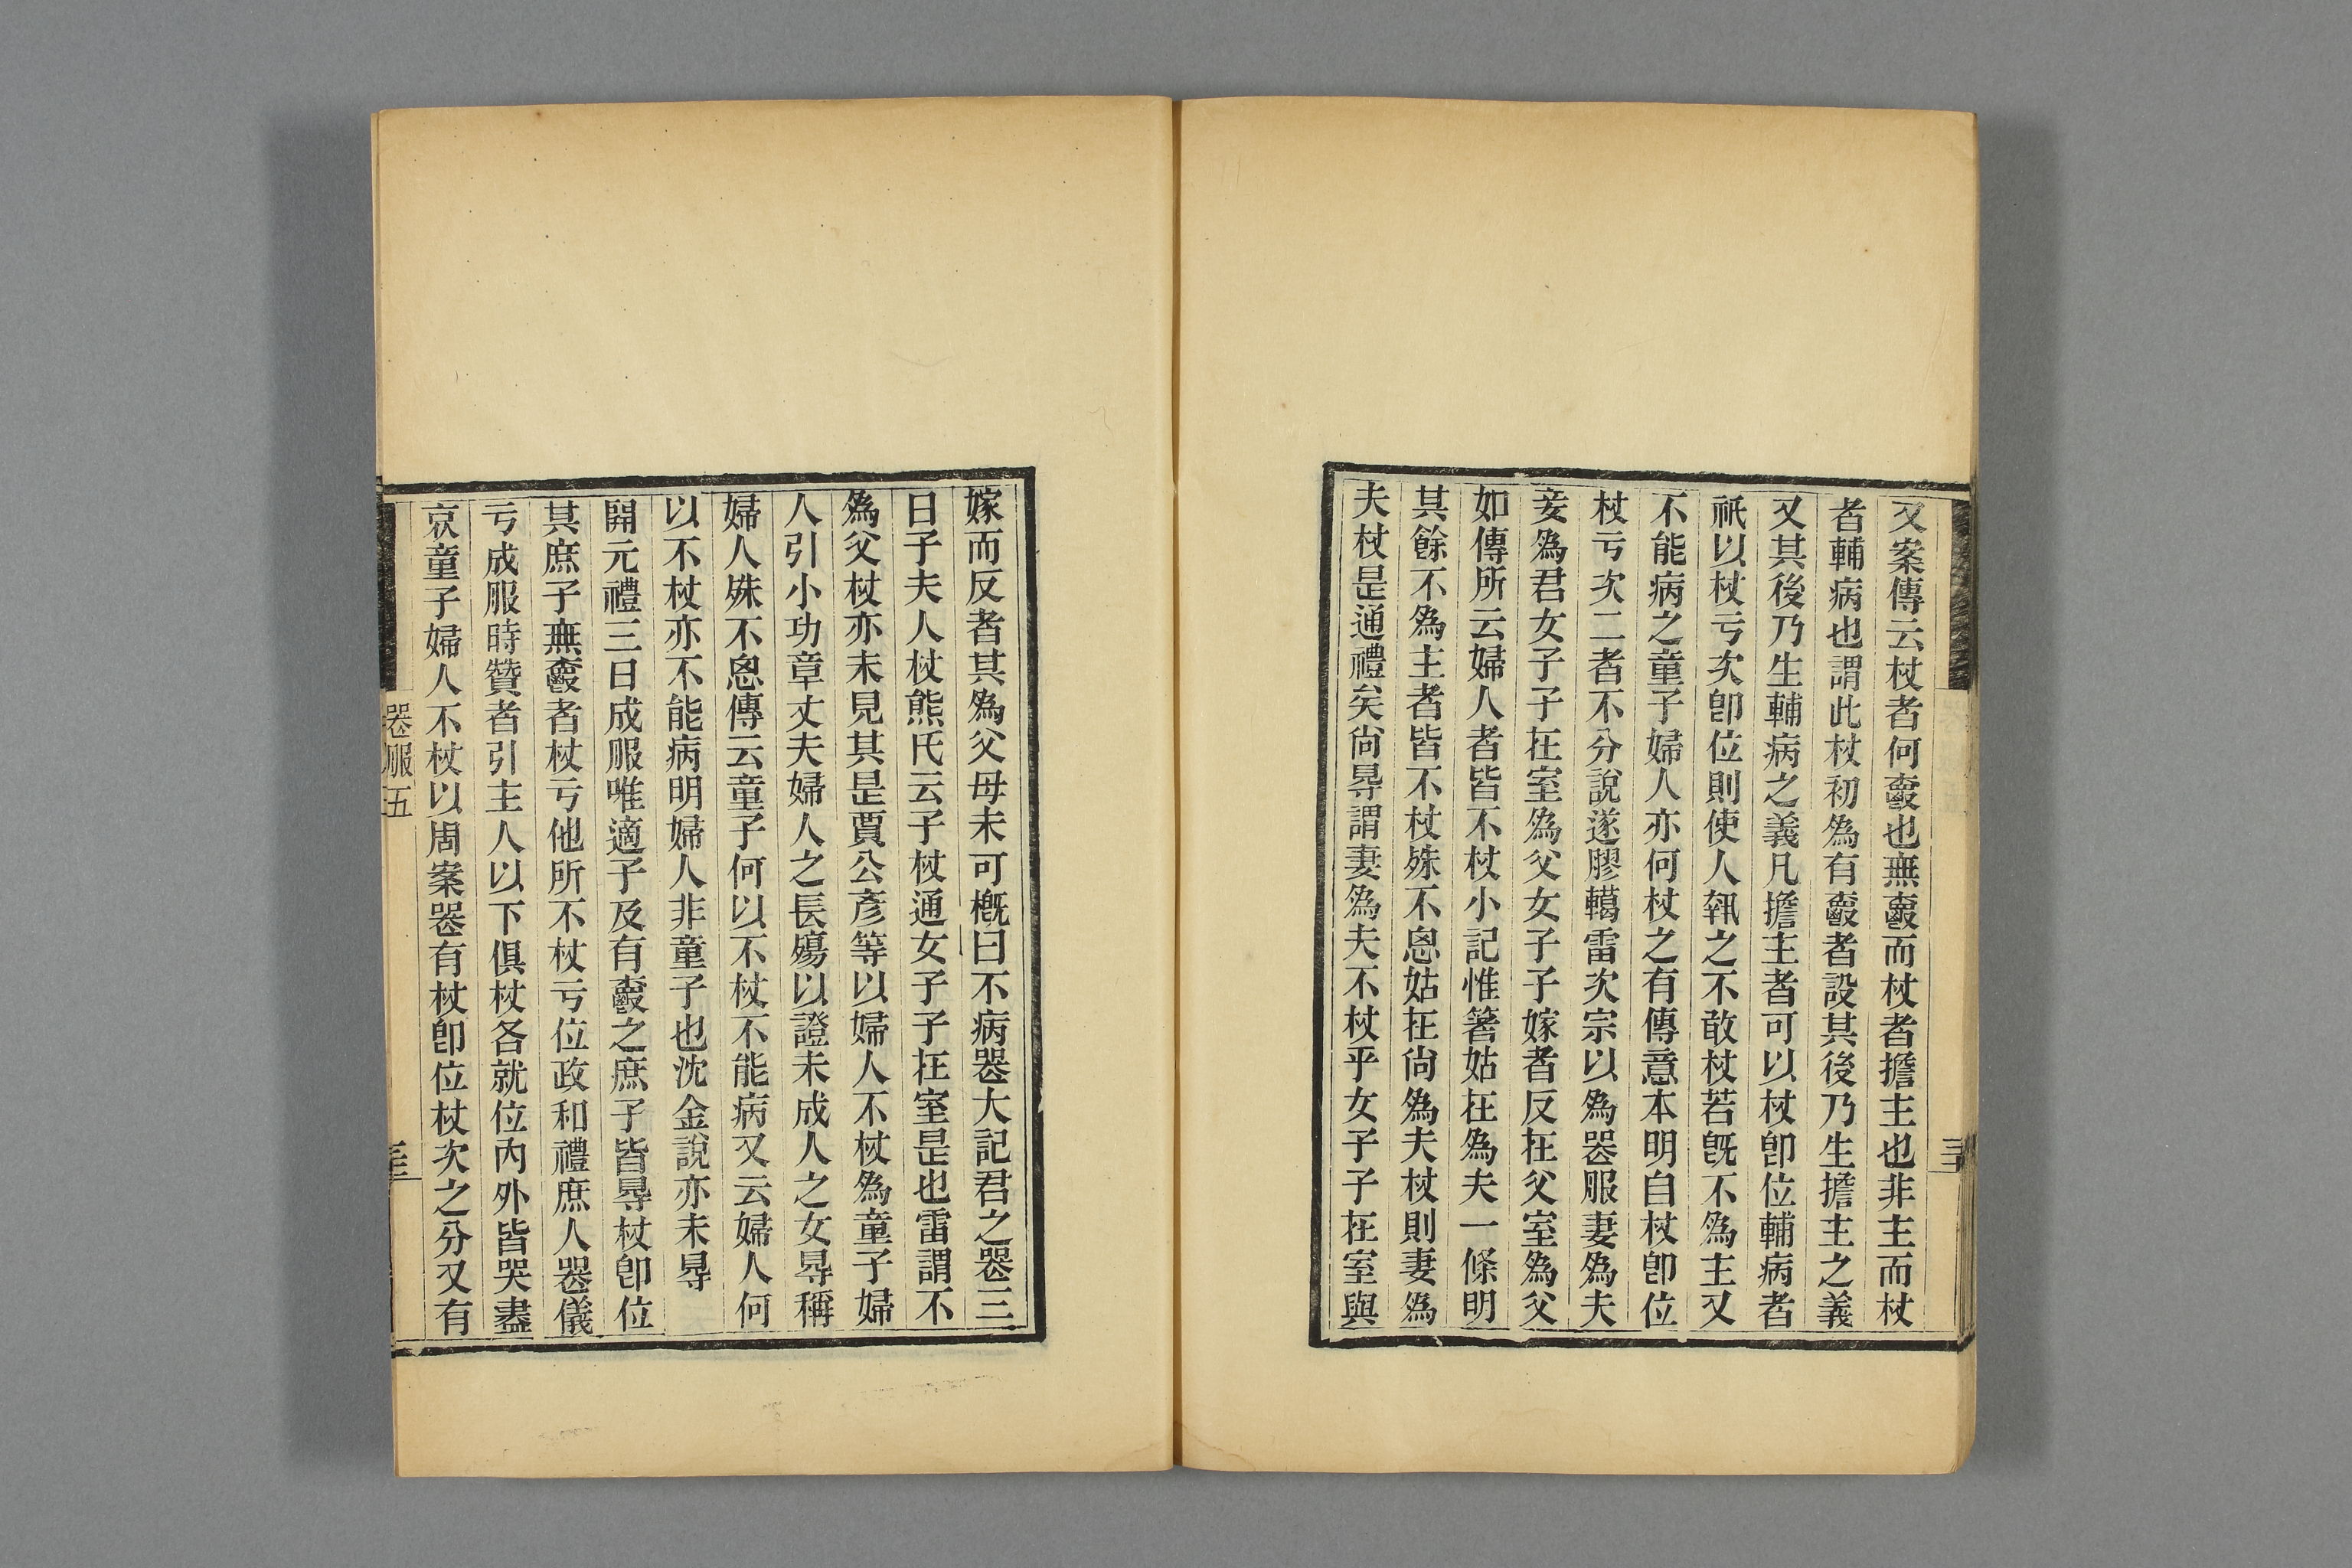 又案傳云杖者何爵也無爵而杖者擔主也非主而杖
者輔病也謂此杖初爲有爵者設其後乃生擔主之義
又其後乃生輔病之義凡擔主者可以杖卽位輔病者
祇以杖亏次卽位則使人執之不敢杖若旣不爲主又
不能病之童子婦人亦何杖之有傳意本明自杖卽位
杖亏次二者不分說遂膠轕雷次宗以爲喪服妻爲夫
妾爲君女子子在室爲父女子子嫁者反在父室爲父
如傳所云婦人者皆不杖小記惟箸姑在爲夫一條明
其餘不爲主者皆不杖殊不恖姑在尙爲夫杖則妻爲
夫杖是通禮矣尙㝵謂妻爲夫不杖乎女子子在室與
嫁而反者其爲父母未可槪曰不病喪大記君之喪三
日子夫人杖熊氏云子杖通女子子在室是也雷謂不
爲父杖亦未見其是賈公彥等以婦人不杖爲童子婦
人引小功章丈夫婦人之長殤以證未成人之女㝵稱
婦人殊不恖傳云童子何以不杖不能病又云婦人何
以不杖亦不能病明婦人非童子也沈金說亦未㝵
開元禮三日成服唯適子及有爵之庶子皆㝵杖卽位
其庶子無爵者杖亏他所不杖亏位政和禮庶人喪儀
亏成服時贊者引主人以下俱杖各就位內外皆哭盡
哀童子婦人不杖以周案喪有杖卽位杖次之分又有
喪服五